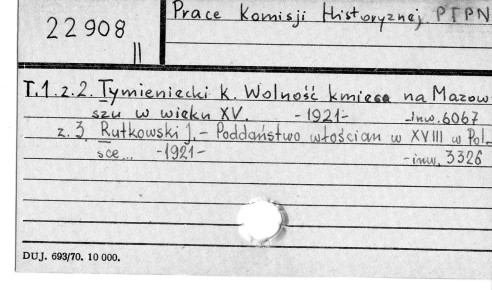 22908
II
Prace Komisji Historycznej PTPN
T.1.z.2. Tymieniecki K. Wolność kmieca na Mazow
szu w wieku XV. -1921- -inw.6067
z. 3. Rutkowski J. - Poddaństwo włościan w XVIII w Pol_
sce... -1921- -inw. 3326
DUJ. 693/70. 10 000.